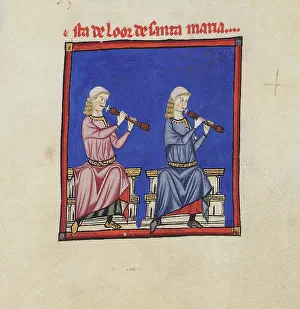 e sta de loor de santa maria....